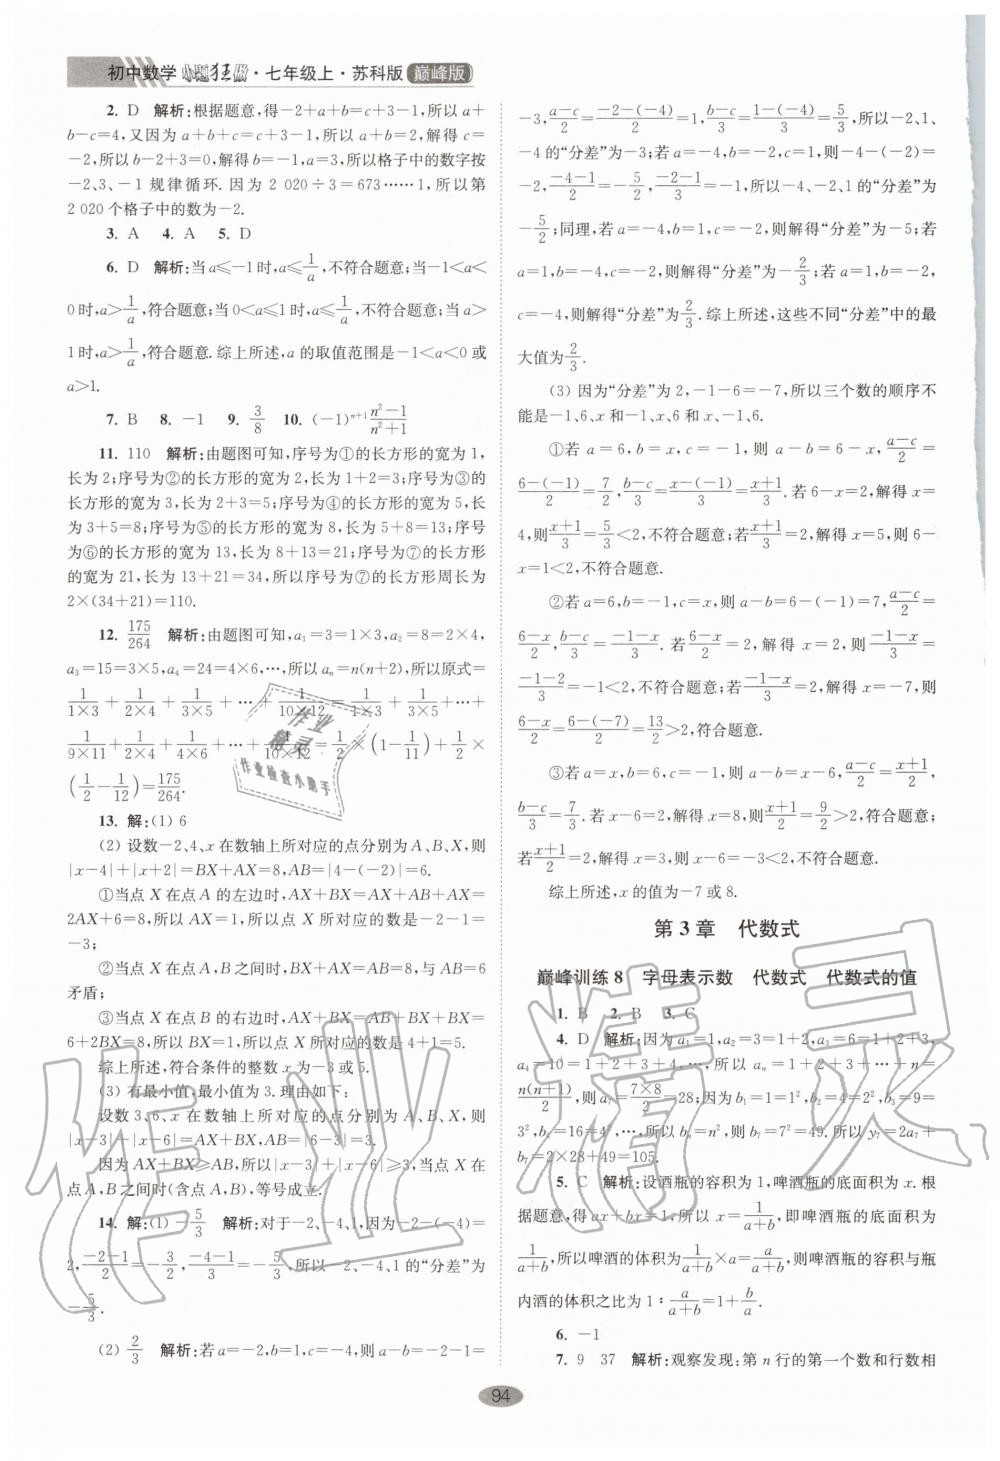 初中数学 小题狂做·七年级上·苏科版 巅峰版
2. D 解析:根据题意,得-2+a+b=c+3-1,所以a+
b-c=4,又因为a+b+c=c+3-1,所以a+b=2,解得c=
-2,所以b-2+3=0,解得b=-1,a=3,所以格子中的数字按
-2、3、-1规律循环.因为2 020÷3=673……1,所以第
2 020个格子中的数为-2.
3. A 4. A 5. D
6. D 解析:当a≤-1时,a≤1/a,不符合题意;当-1<a<
0时,a>1/a,符合题意;当0<a≤1时,a≤1/a,不符合题意;当a>
1时,a>1/a,符合题意.综上所述,a的取值范围是-1<a<0或
a>1.
7. B 8. -1 9. 3/8 10. (-1)^(n+1) (n²-1)/(n²+1)
11. 110 解析:由题图可知,序号为①的长方形的宽为1,
长为2;序号为②的长方形的宽为2,长为1+2=3;序号为③的
长方形的宽为3,长为2+3=5;序号为④的长方形的宽为5,
长为3+5=8;序号为⑤的长方形的宽为8,长为5+8=13;序号
为⑥的长方形的宽为13,长为8+13=21;序号为⑦的长方形
的宽为21,长为13+21=34,所以序号为⑦的长方形周长为
2×(34+21)=110.
12. 175/264 解析:由题图可知,a₁=3=1×3,a₂=8=2×4,
a₃=15=3×5,a₄=24=4×6,…,所以aₙ=n(n+2),所以原式=
1/(1×3)+1/(2×4)+1/(3×5)+…+1/(10×12)=1/(1×3)+1/(3×5)+…+
1/(9×11)+1/(2×4)+1/(4×6)+…+1/(10×12)=1/2×(1-1/11)+1/2×
(1/2-1/12)=175/264.
13. 解:(1) 6
(2) 设数-2、4、x在数轴上所对应的点分别为A、B、X,则
|x-4|+|x+2|=BX+AX=8,AB=|4-(-2)|=6.
①当点X在点A的左边时,AX+BX=AX+AB+AX=
2AX+6=8,所以AX=1,所以点X所对应的数是-2-1=
-3;
②当点X在点A、B之间时,BX+AX=AB=8,与AB=6
矛盾;
③当点X在点B的右边时,AX+BX=AB+BX+BX=
6+2BX=8,所以BX=1,所以点X所对应的数是4+1=5.
综上所述,符合条件的整数x为-3或5.
(3) 有最小值,最小值为3.理由如下:
设数3、6、x在数轴上所对应的点分别为A、B、X,则
|x-3|+|x-6|=AX+BX,AB=|6-3|=3.
因为AX+BX≥AB,所以|x-3|+|x-6|≥3,当点X在
点A、B之间时(含点A、B),等号成立.
14. 解:(1) -5/3 解析:对于-2、-4、1,因为-2-(-4)=
2,(-2-1)/2=-3/2,(-4-1)/3=-5/3,所以-2、-4、1的“分差”为
-5/3.
(2) 2/3 解析:若a=-2,b=1,c=-4,则a-b=-2-1=
-3,(a-c)/2=(-2-(-4))/2=1,(b-c)/3=(1-(-4))/3=5/3,所以-2、1、
-4的“分差”为-3;若a=-4,b=-2,c=1,则-4-(-2)=
-2,(-4-1)/2=-5/2,(-2-1)/3=-1,所以-4、-2、1的“分差”为
-5/2;同理,若a=-4,b=1,c=-2,则解得“分差”为-5;若
a=1,b=-4,c=-2,则解得“分差”为-2/3;若a=1,b=-2,
c=-4,则解得“分差”为2/3.综上所述,这些不同“分差”中的最
大值为2/3.
(3) 因为“分差”为2,-1-6=-7,所以三个数的顺序不
能是-1、6、x和-1、x、6和x、-1、6.
①若a=6,b=x,c=-1,则a-b=6-x,(a-c)/2=
(6-(-1))/2=7/2,(b-c)/3=(x-(-1))/3=(x+1)/3.若6-x=2,解得x=
4,则(x+1)/3=5/3<2,不符合题意;若(x+1)/3=2,解得x=5,则6-
x=1<2,不符合题意.
②若a=6,b=-1,c=x,则a-b=6-(-1)=7,(a-c)/2=
(6-x)/2,(b-c)/3=(-1-x)/3.若(6-x)/2=2,解得x=2,则(-1-x)/3=
(-1-2)/3=-1<2,不符合题意;若(-1-x)/3=2,解得x=-7,则
(6-x)/2=(6-(-7))/2=13/2>2,符合题意.
③若a=x,b=6,c=-1,则a-b=x-6,(a-c)/2=(x+1)/2,
(b-c)/3=7/3.若x-6=2,解得x=8,则(x+1)/2=9/2>2,符合题意;
若(x+1)/2=2,解得x=3,则x-6=-3<2,不符合题意.
综上所述,x的值为-7或8.
第3章 代数式
巅峰训练8 字母表示数 代数式 代数式的值
1. B 2. B 3. C
4. D 解析:因为a₁=1,a₂=3=1+2,a₃=6=1+2+3,
a₄=10=1+2+3+4,…,所以aₙ=1+2+3+…+n=
n(n+1)/2,则a₇=(7×8)/2=28;因为b₁=1=1²,b₂=4=2²,b₃=9=
3²,b₄=16=4²,…,所以bₙ=n²,则b₇=7²=49.所以y₇=2a₇+
b₇=2×28+49=105.
5. C 解析:设酒瓶的容积为1,啤酒瓶的底面积为x.根
据题意,得ax+bx=1,所以x=1/(a+b),即啤酒瓶的底面积为
1/(a+b),所以啤酒的体积为1/(a+b)×a=a/(a+b),所以啤酒瓶的容积与瓶
内酒的体积之比为1∶a/(a+b)=1+b/a.
6. -1
7. 9 37 解析:观察发现:第n行的第一个数和行数相
94
作业精灵
作业检查小助手
作业精灵